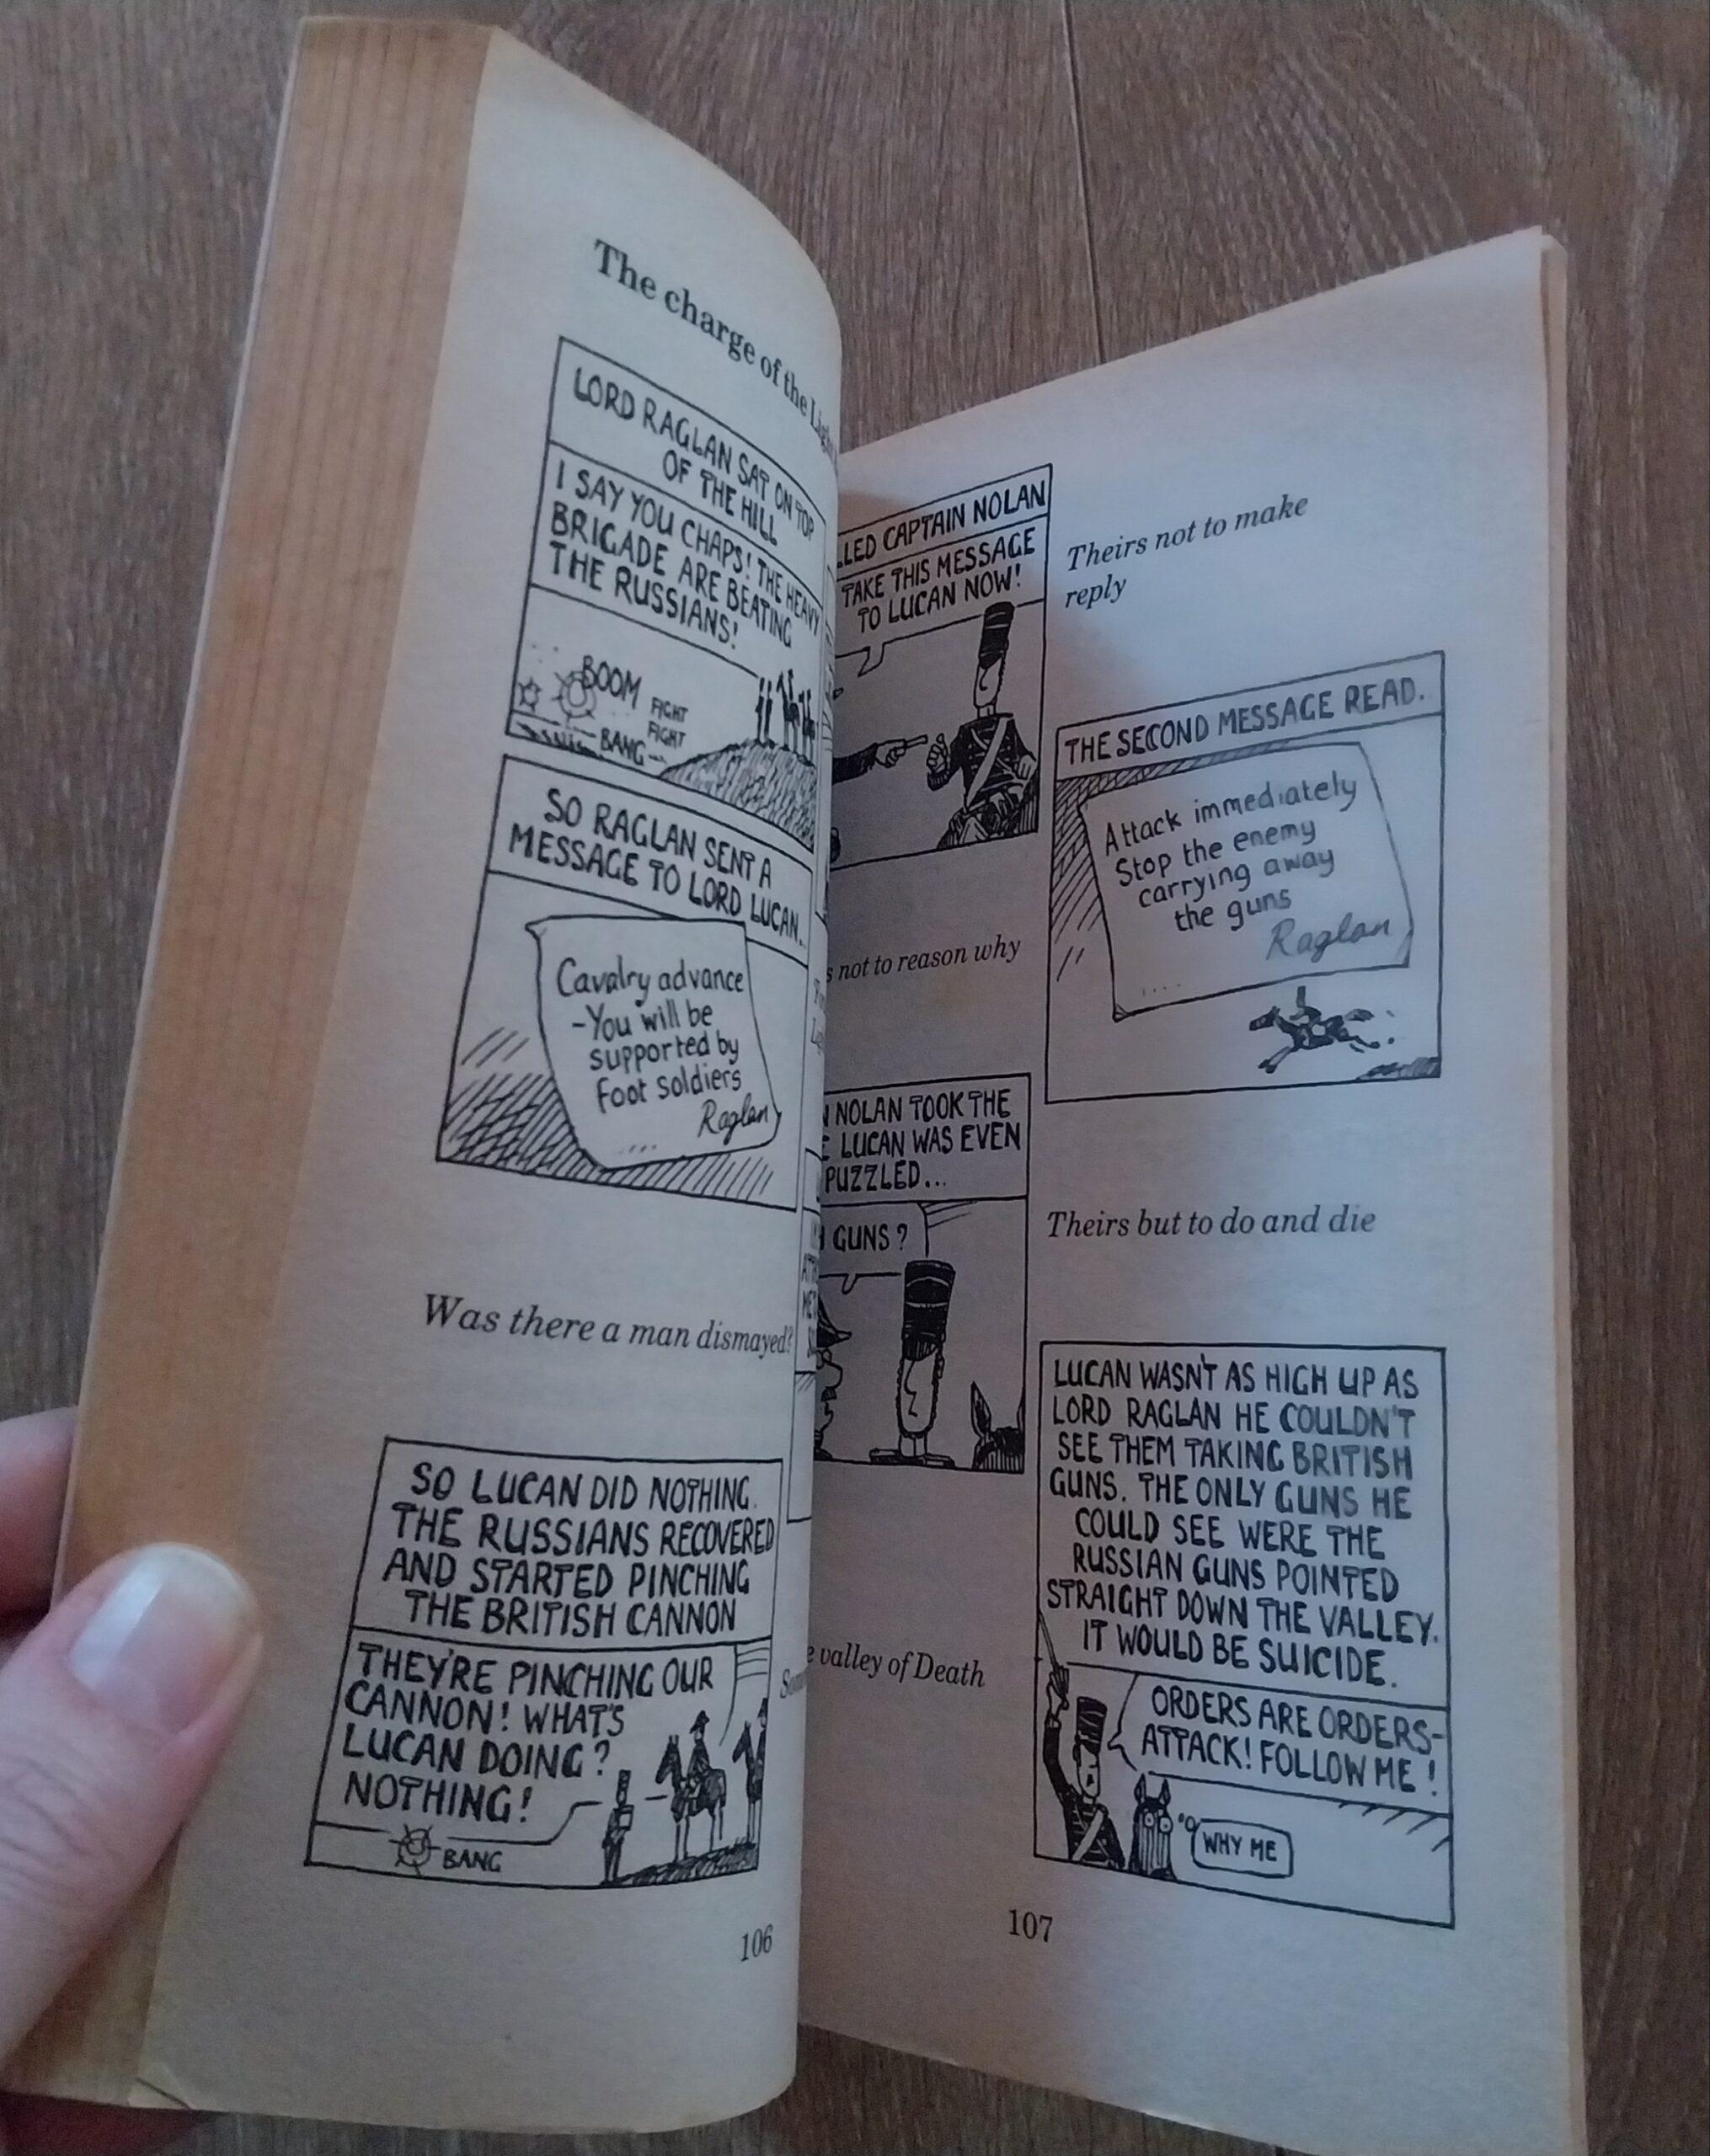 The charge of the
LORD RAGLAN SAT ON TOP
OF THE HILL
I SAY YOU CHAPS! THE HEAVY
BRIGADE ARE BEATING
THE RUSSIANS!
BOOM
FIGHT
FIGHT
BANG
SO RAGLAN SENT A
MESSAGE TO LORD LUCAN.
Cavalry advance
-You will be
supported by
foot soldiers
Raglan
....
Was there a man dismayed?
SO LUCAN DID NOTHING.
THE RUSSIANS RECOVERED
AND STARTED PINCHING
THE BRITISH CANNON
THEY'RE PINCHING OUR
CANNON! WHAT'S
LUCAN DOING?
NOTHING!
BANG
106
CAPTAIN NOLAN
TAKE THIS MESSAGE
TO LUCAN NOW!
not to reason why
NOLAN TOOK THE
LUCAN WAS EVEN
PUZZLED...
GUNS?
valley of Death
Theirs not to make
reply
THE SECOND MESSAGE READ.
Attack immediately
Stop the enemy
carrying away
the guns
Raglan
....
Theirs but to do and die
LUCAN WASN'T AS HIGH UP AS
LORD RAGLAN HE COULDN'T
SEE THEM TAKING BRITISH
GUNS. THE ONLY GUNS HE
COULD SEE WERE THE
RUSSIAN GUNS POINTED
STRAIGHT DOWN THE VALLEY.
IT WOULD BE SUICIDE.
ORDERS ARE ORDERS-
ATTACK! FOLLOW ME!
WHY ME
107